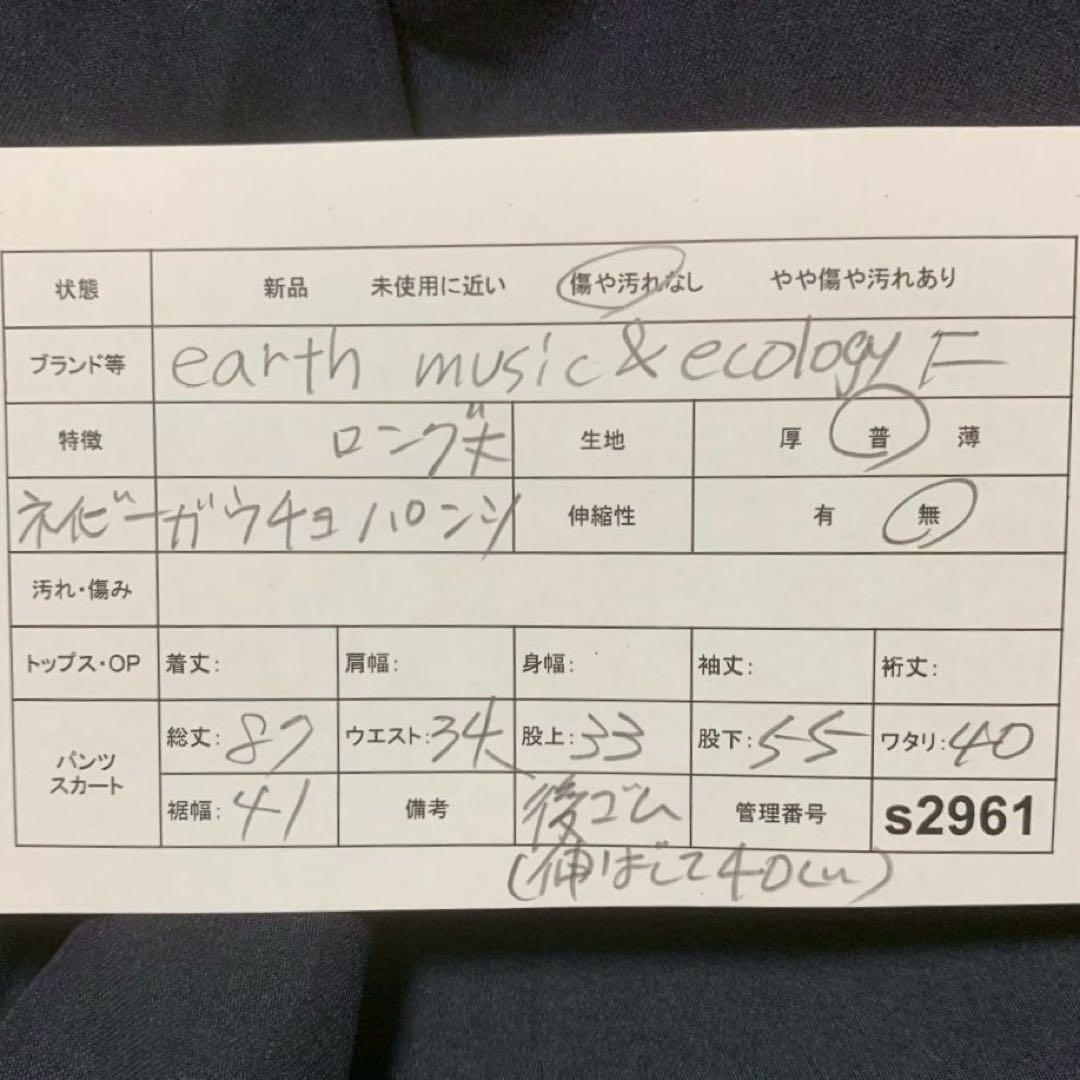 状態 新品 未使用に近い 傷や汚れなし やや傷や汚れあり
ブランド等 earth music & ecology F
特徴 ロング丈 生地 厚 普 薄
ネイビーガウチョパンツ 伸縮性 有 無
汚れ・傷み
トップス・OP 着丈: 肩幅: 身幅: 袖丈: 裄丈:
パンツ スカート 総丈: 87 ウエスト: 34 股上: 33 股下: 55 ワタリ: 40
裾幅: 41 備考 後ゴム 管理番号 s2961
(伸ばして40cm)